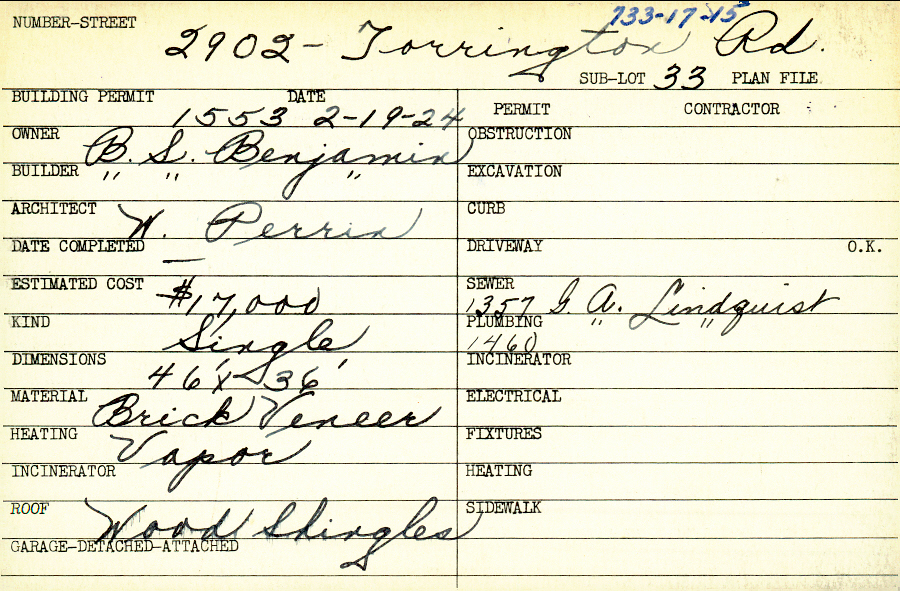 733-17-15
NUMBER-STREET
2902 - Torrington Rd.
SUB-LOT 33 PLAN FILE
BUILDING PERMIT DATE
1553 2-19-24
PERMIT CONTRACTOR
OWNER B. S. Benjamin
OBSTRUCTION
BUILDER " " "
EXCAVATION
ARCHITECT W. Perrin
CURB
DATE COMPLETED —
DRIVEWAY O.K.
ESTIMATED COST $17,000
SEWER
1357 G. A. Lindquist
KIND Single
PLUMBING " "
1460
DIMENSIONS 46' x 36'
INCINERATOR
MATERIAL Brick Veneer
ELECTRICAL
HEATING Vapor
FIXTURES
INCINERATOR
HEATING
ROOF Wood Shingles
SIDEWALK
GARAGE-DETACHED-ATTACHED